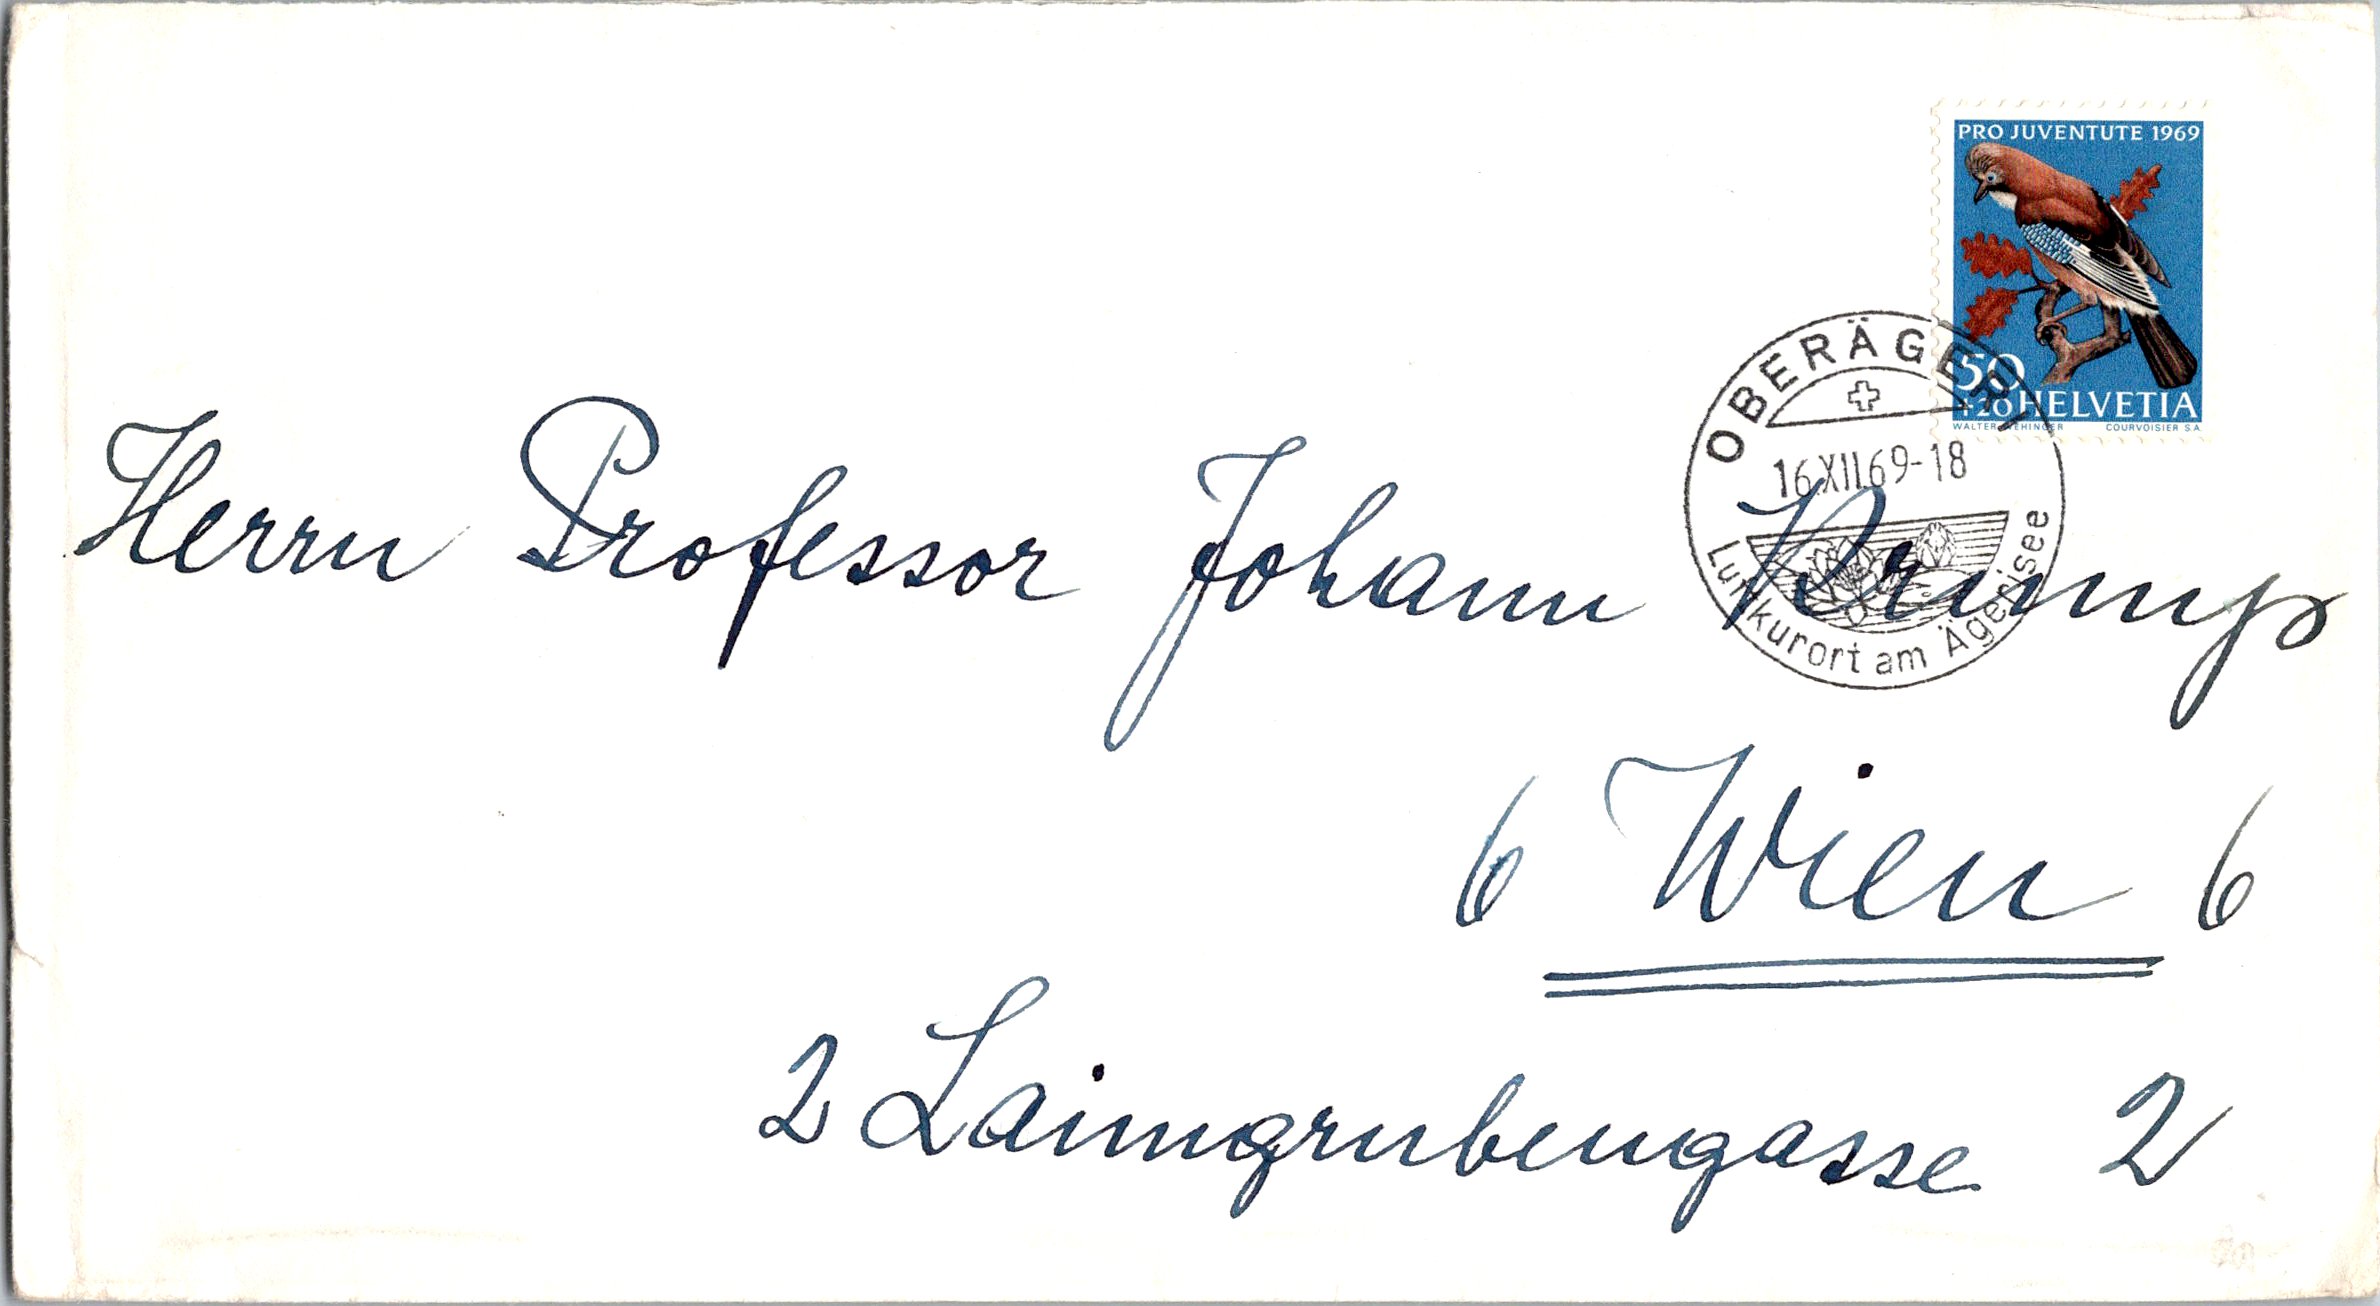 PRO JUVENTUTE 1969
50
+20 HELVETIA
WALTER WEHINGER COURVOISIER S.A.
OBERÄGERI
16.XII.69-18
Luftkurort am Ägerisee
Herrn Professor Johann Krump
6 Wien 6
2 Laimgrubengasse 2